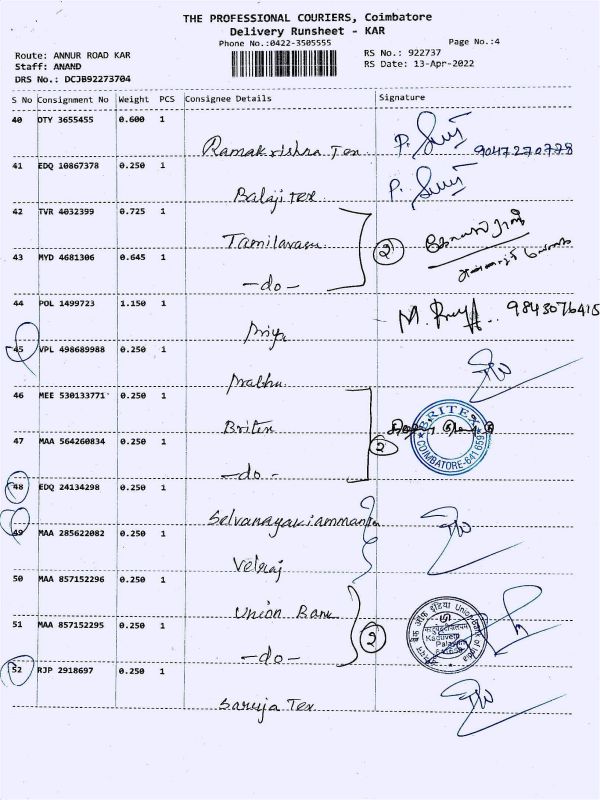 THE PROFESSIONAL COURIERS, Coimbatore
Delivery Runsheet - KAR
Phone No.:0422-3505555
Page No.:4
Route: ANNUR ROAD KAR
RS No.: 922737
Staff: ANAND
RS Date: 13-Apr-2022
DRS No.: DCJB92273704
S No Consignment No Weight PCS Consignee Details Signature
40 DTY 3655455 0.600 1
Ramakrishna Tex P. 9047270778
41 EDQ 10867378 0.250 1
Balaji tex P.
42 TVR 4032399 0.725 1
Tamilarasu 2
43 MYD 4681306 0.645 1
-do-
44 POL 1499723 1.150 1
Priya M. 9843076415
45 VPL 498689988 0.250 1
Prabhu
46 MEE 530133771 0.250 1
Britex BRITEX
47 MAA 564260834 0.250 1 2 COIMBATORE-641 659
-do-
48 EDQ 24134298 0.250 1
Selvanayakiamman Tex
49 MAA 285622082 0.250 1
Velraj
50 MAA 857152296 0.250 1
Union Bank
51 MAA 857152295 0.250 1
-do- 2
यूनियन बैंक ऑफ इंडिया Union Bank of India
52 RJP 2918697 0.250 1
Saruja Tex